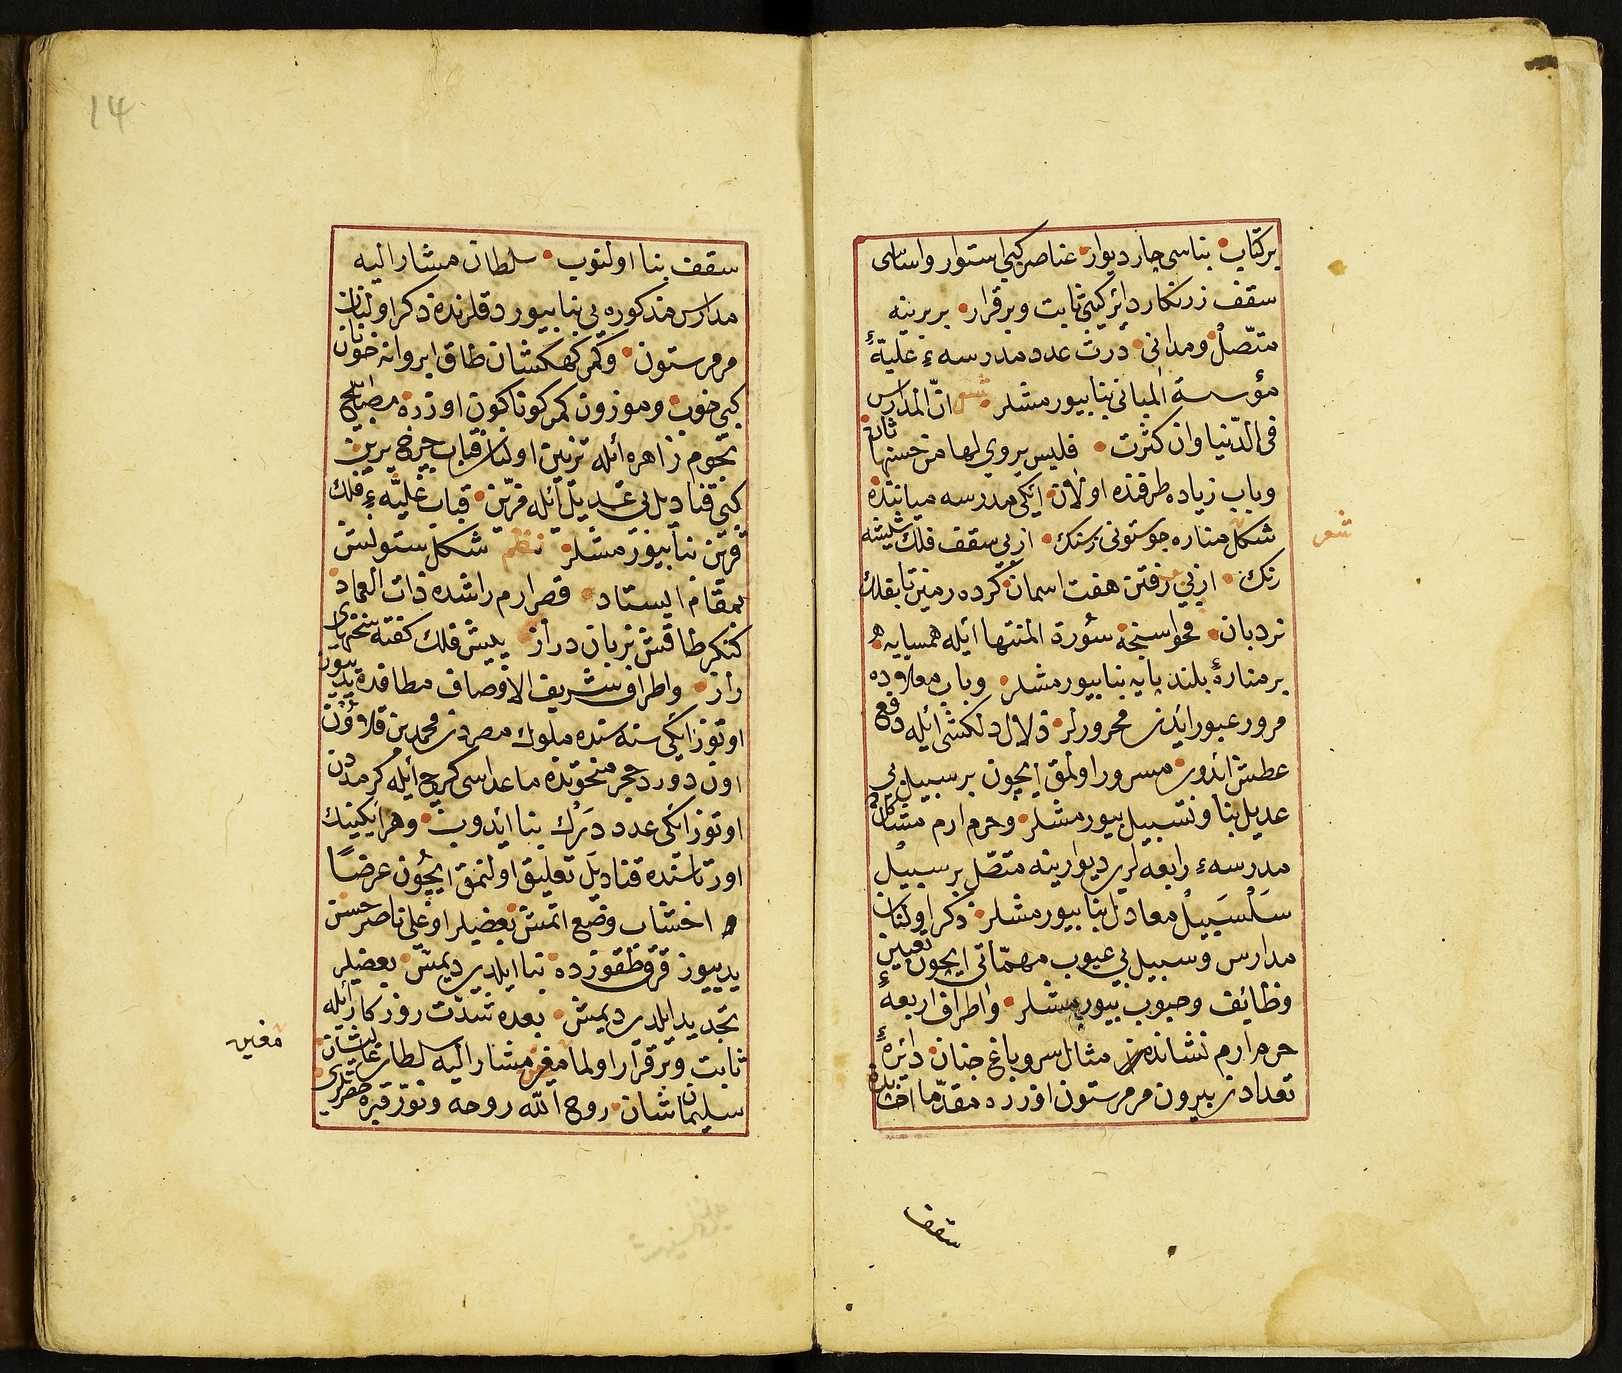 بر كتاب بناسی چار دیوار عناصر كبی استوار و اساسی
سقف زرنكار دائر كبی ثابت و برقرار بربرینه
متّصل و مدانی درت عدد مدرسهء علیّهٔ
مؤسسة المبانی بنا بیورمشلر شعر انّ المدارس
فی الدّنیا وان كثرت فلیس یروی لها من حسنها ثان
و باب زیاده طرفنده اولان ایكی مدرسه میاننده
شكل مناره چو ستونی زسنك از پی سقف فلك شیشه
رنك از پی رفتن هفت اسمان كرده زمین تا بفلك
نردبان فحواسنجه سورة المنتها ایله همسایه
بر منارهٔ بلند پایه بنا بیورمشلر و باب معلاوده
مرور عبور ایدن محرورلر زلال دلكشی ایله دفع
عطش ایدوب مسرور اولمق ایچون بر سبیل بی
عدیل بنا و تسبیل بیورمشلر و حرم ارم مشاكله
مدرسهء رابعه لری دیوارینه متّصل بر سبیل
سلسبیل معادل بنا بیورمشلر ذكر اولنان
مدارس و سبیل بی عیوب مهمّاتی ایچون تعیین
وظائف و حبوب بیورمشلر و اطراف اربعهٔ
حرم ارم نشانده مثال سرو باغ جنان دائرهٔ
تعداددن بیرون مرمر ستون اوزره مقدّما اخشابدن
سقف
شعر
14
سقف بنا اولنوب سلطان مشار الیه
مدارس مذكوره یی بنا بیوردقلرنده ذكر اولنان
مرمر ستون و كمر كهكشان طاق ابروانه خوبان
كبی خوب و موزون كمر كوناكون اوزره مصابیح
نجوم زاهره ائله تزیین اولنان قباب چرخ برین
كبی قنادیل بی عدیل ائله مزیّن قباب علیّهء فلك
قرین بنا بیورمشلر نظم شكل ستونش
بمقام ایستاد قصر ارم راشده ذات العماد
كنكر طاقش بزبان دراز پیش فلك كفته سخنهای
راز و اطراف شریف الاوصاف مطافده یدییوز
اوتوز ایكی سنه سنده ملوك مصردن محمد بن قلاوون
اون دورد حجر منحوتدن ماعداسی كرج ایله كرمیددن
اوتوز ایكی عدد درك بنا ایدوب و هر ایكینك
اورتاسنده قنادیل تعلیق اولنمق ایچون عرضاً
اخشاب وضع اتمش بعضیلر اوغلی ناصر حسن
یدییوز قرق طقوزده بنا ایلدی دیمش بعضیلر
تجدید ایلدی دیمش بعده شدّت روزكار ایله
ثابت و برقرار اولمامغین مشار الیه سلطان عالیشان
سلیمان شان روح الله روحه و نوّر قبره حضرتلری
مغین